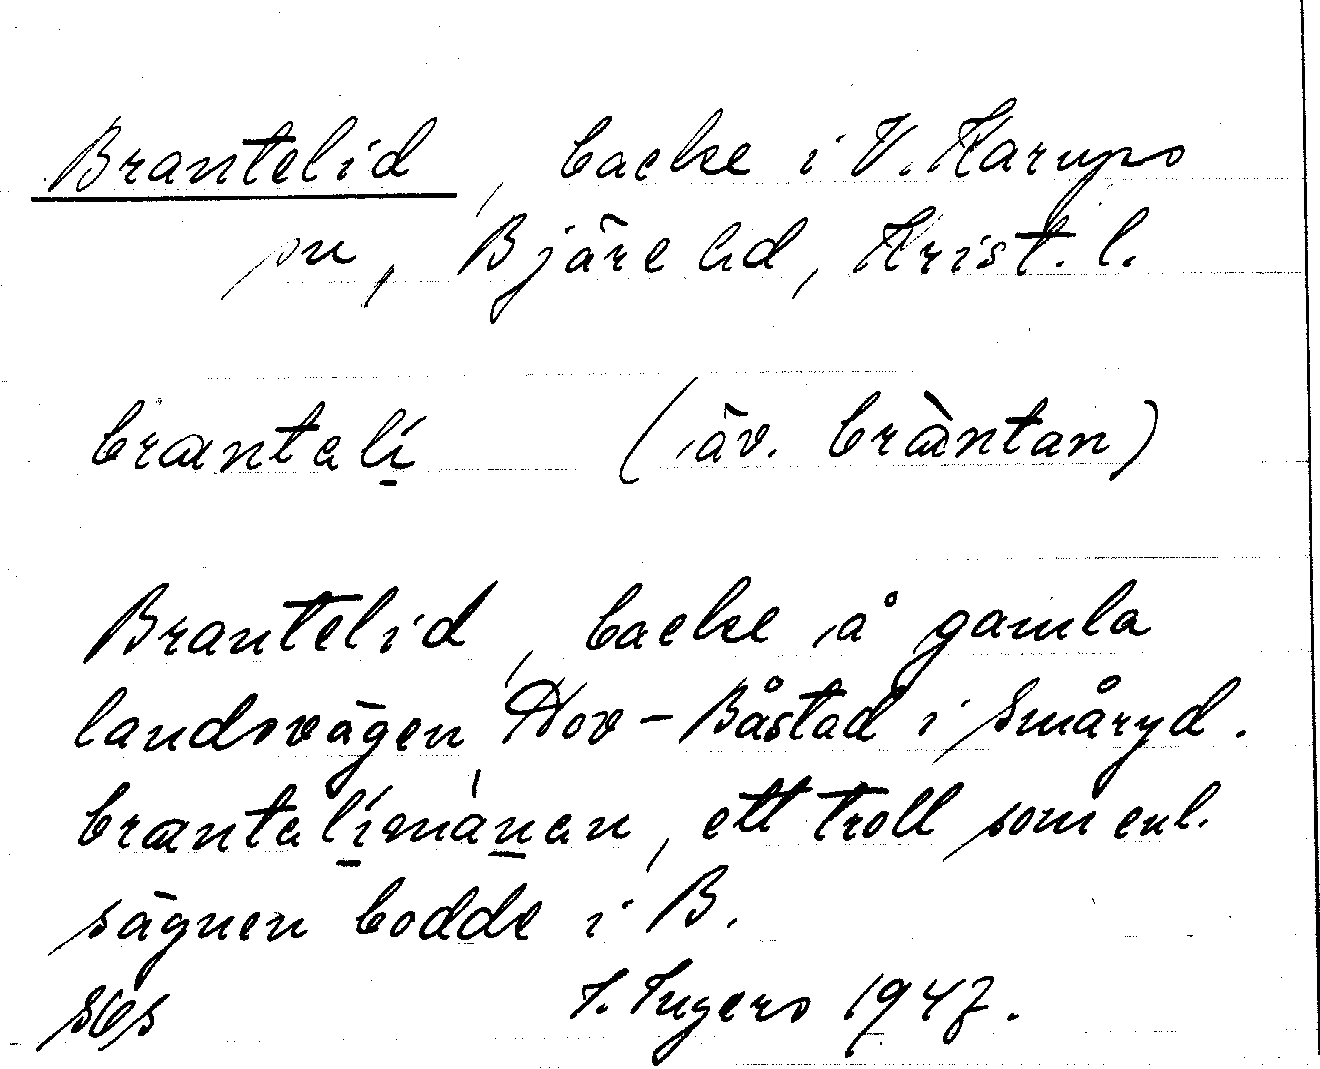 Brantelid, backe i V. Karups
sn, Bjäre hd, Krist. l.
bræntalí (äv. brǽntan)
Brantelid, backe å gamla
landsvägen Hov - Båstad i Småryd.
bræntalímánan, ett troll som enl.
sägnen bodde i B.
I. Ingers 1947.